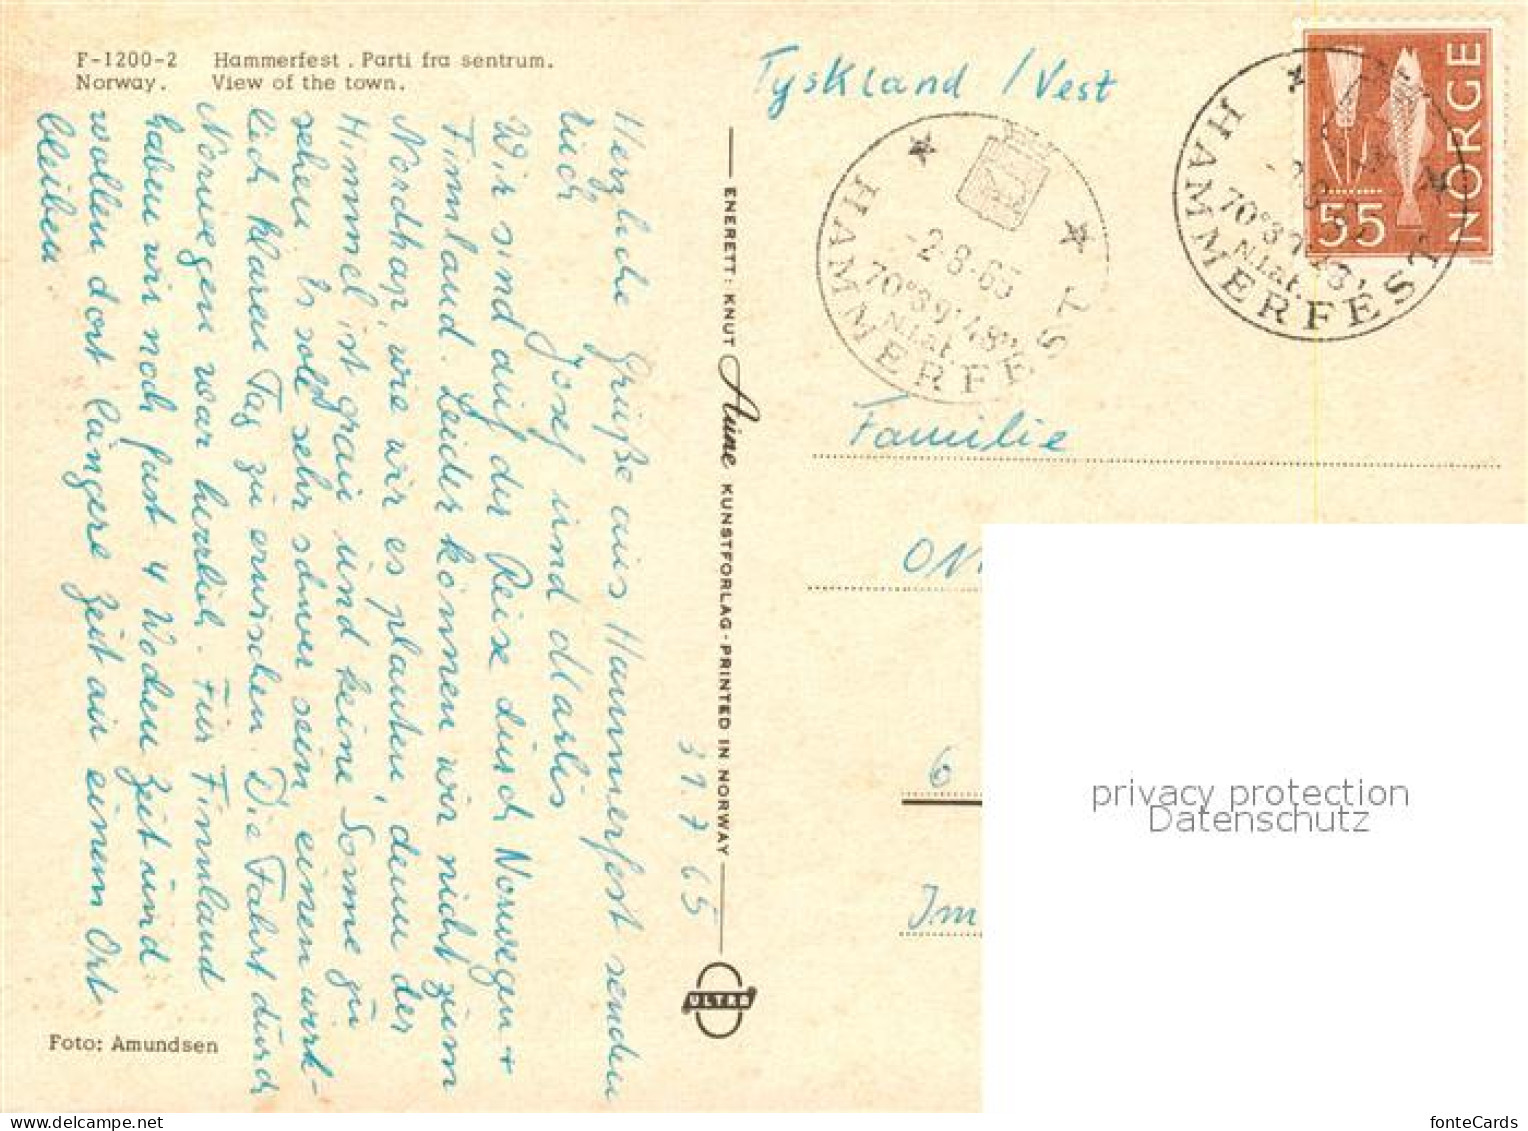 F-1200-2 Hammerfest . Parti fra sentrum.
Norway. View of the town.
Herzliche Grüße aus Hammerfest senden
Euch
Josef und Marlis
Wir sind auf der Reise durch Norwegen +
Finnland. Leider können wir nicht zum
Nordkap, wie wir es planten, denn der
Himmel ist grau und keine Sonne zu
sehen. Es soll sehr schwer sein, einen wirk-
lich klaren Tag zu erwischen. Die Fahrt durch
Norwegen war herrlich. Für Finnland
haben wir noch fast 4 Wochen Zeit und
wollen dort längere Zeit an einem Ort
bleiben.
31.7.65
Foto: Amundsen
ENERETT: KNUT Aune KUNSTFORLAG · PRINTED IN NORWAY
ULTRA
Tyskland / Vest
HAMMERFEST
-2-8-65
70°39'48"
N.lat.
HAMMERFEST
N.lat.
NORGE
55
Familie
6
Im
privacy protection
Datenschutz
fonteCards